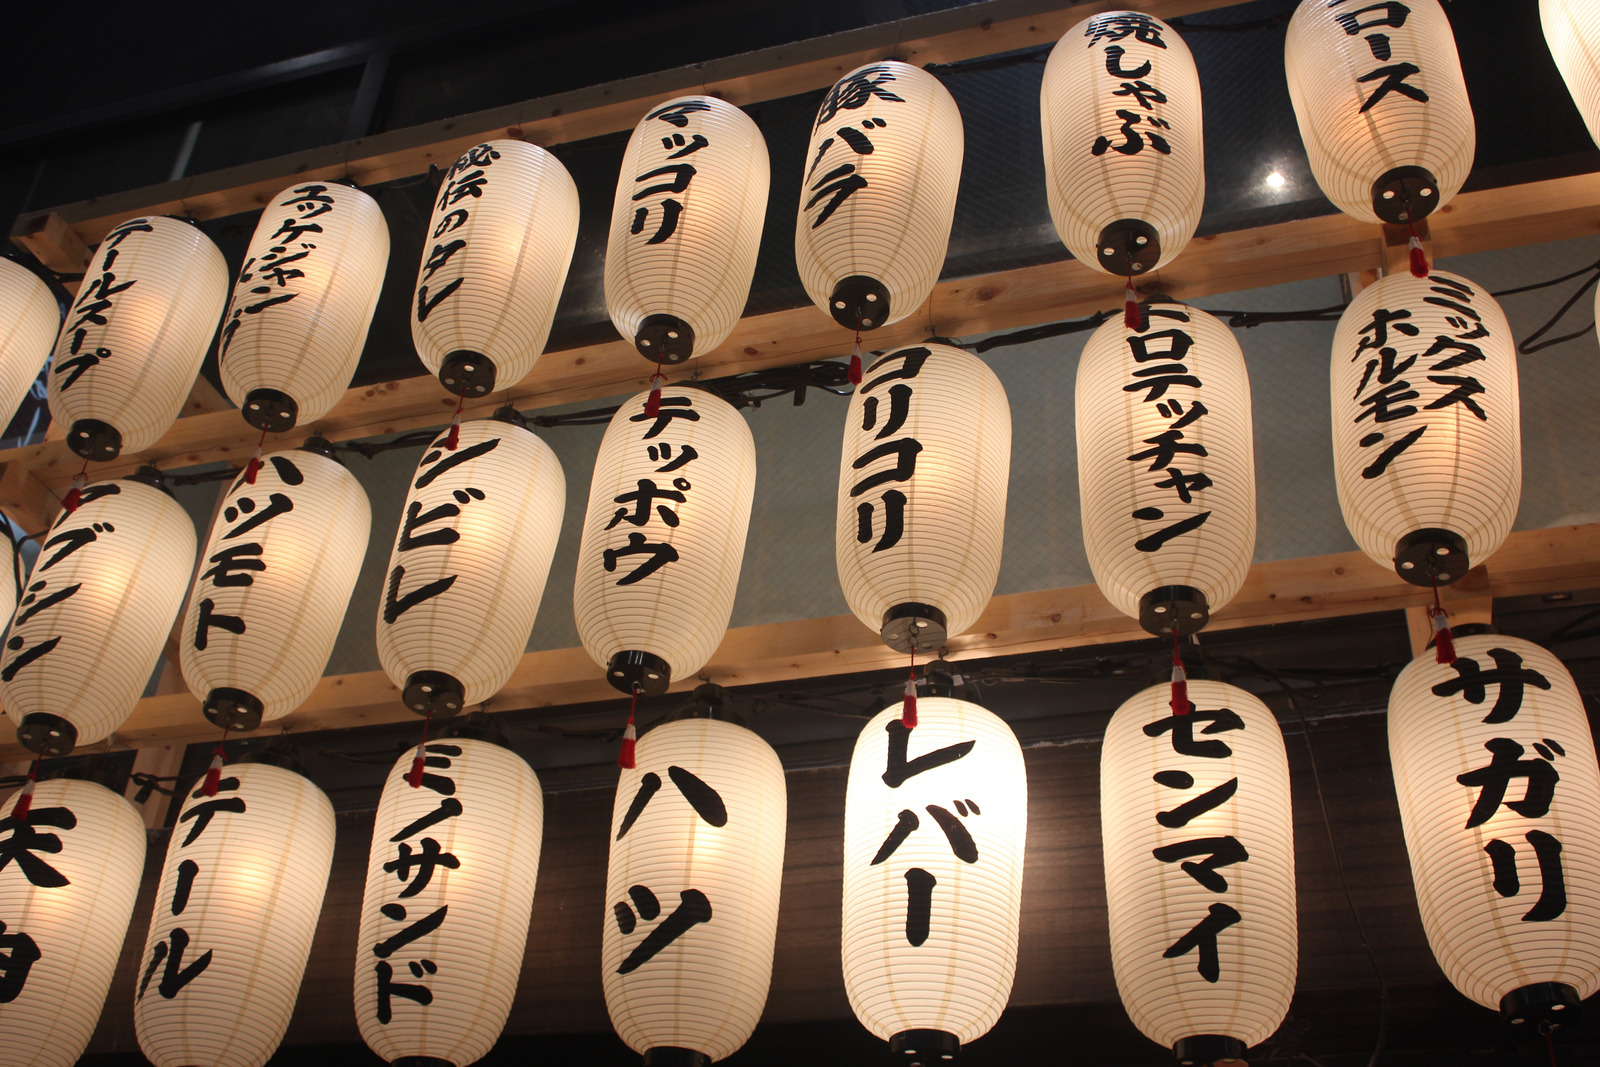 テールスープ
ユッケジャン
秘伝のタレ
マッコリ
豚バラ
焼しゃぶ
ロース
ブシン
ハツモト
シビレ
テッポウ
コリコリ
トロテッチャン
ミックス
ホルモン
テール
ミノサンド
ハツ
レバー
センマイ
サガリ